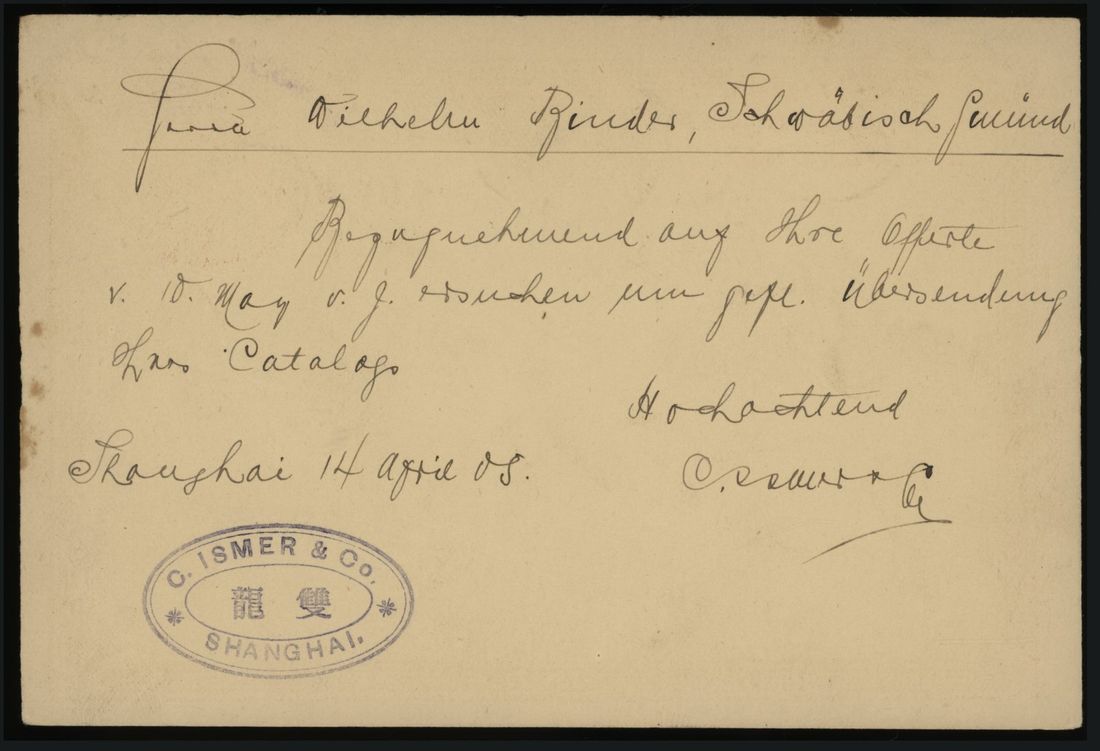 Firma Wilhelm Binder, Schwäbisch Gmünd
Bezugnehmend auf Ihre Offerte
v. 10. May v. J. ersuchen um gefl. Übersendung
Ihres Catalogs
Hochachtend
Shanghai 14 April 05.
C. Ismer & Co
C. ISMER & Co.
龍 雙
SHANGHAI.